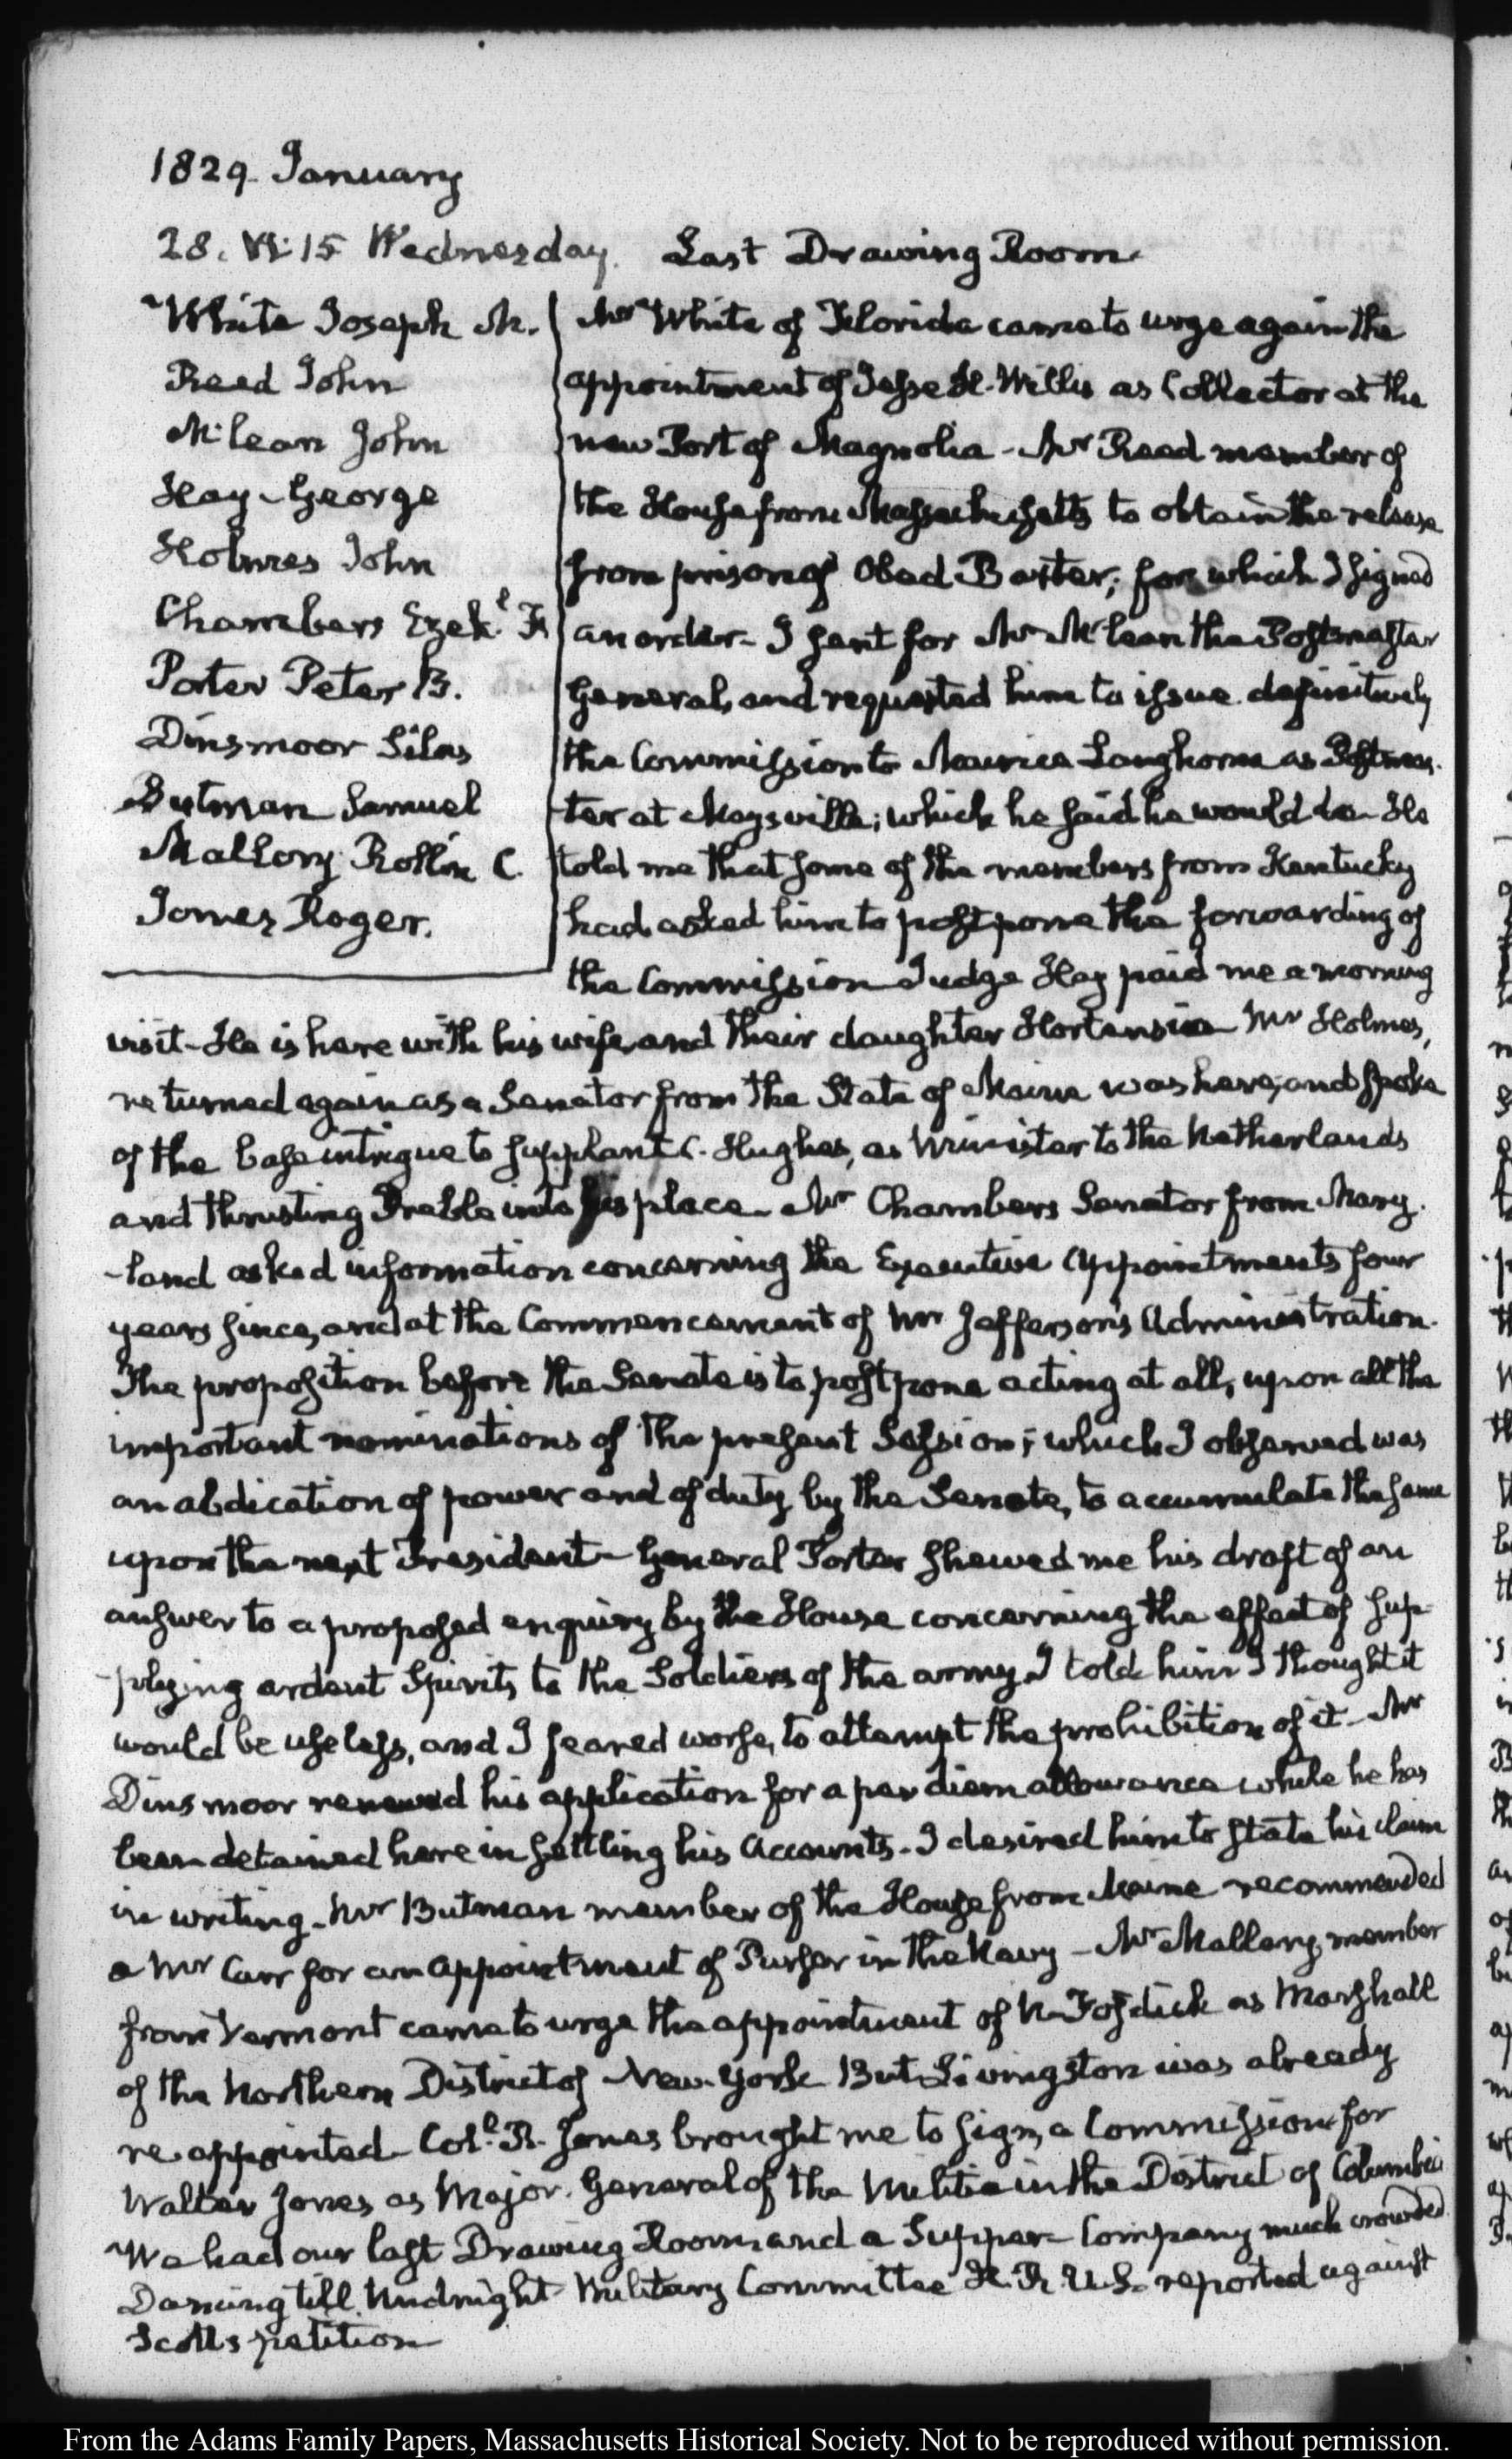 1829. January
28. VI:15 Wednesday. Last Drawing Room.
White Joseph M.
Reed John
McLean John
Hay George
Holmes John
Chambers Ezek.l F
Porter Peter B.
Dinsmoor Silas
Butman Samuel
Mallory Rollin C.
Jones Roger.
Mr White of Florida came to urge again the
appointment of Jesse H. Willis as Collector at the
new Port of Magnolia - Mr Reed member of
the House from Massachusetts to obtain the release
from prison of Obed Baxter; for which I signed
an order - I sent for Mr McLean the Postmaster
General, and requested him to issue definitively
the Commission to Maurice Langhorne as Postmas-
ter at Maysville; which he said he would do - He
told me that some of the members from Kentucky
had asked him to postpone the forwarding of
the Commission Judge Hay paid me a morning
visit - He is here with his wife, and their daughter Hortensia Mr Holmes,
returned again as a Senator from the State of Maine was here, and spoke
of the base intrigue to supplant C. Hughes, as Minister to the Netherlands
and thrusting Preble into his place - Mr Chambers Senator from Mary-
-land asked information concerning the Executive appointments four
years since, and at the Commencement of Mr Jefferson's Administration.
The proposition before the Senate is to postpone acting at all, upon all the
important nominations of the present Session; which I observed was
an abdication of power and of duty by the Senate, to accumulate the same
upon the next President - General Porter shewed me his draft of an
answer to a proposed enquiry by the House concerning the effect of sup-
-plying ardent Spirits to the Soldiers of the army. I told him I thought it
would be useless, and I feared worse, to attempt the prohibition of it - Mr
Dinsmoor renewed his application for a per diem allowance while he has
been detained here in settling his Accounts. I desired him to state his claim
in writing - Mr Butman member of the House from Maine recommended
a Mr Carr for an appointment of Purser in the Navy - Mr Mallary, member
from Vermont came to urge the appointment of N. Fosdick as Marshall
of the Northern District of New-York But Livingston was already
re-appointed - Col.l R. Jones brought me to sign, a Commission for
Walter Jones as Major General of the Militia in the District of Columbia
We had our last Drawing Room and a Supper - Company much crowded
Dancing till Midnight Military Committee H. R. U.S. reported against
Scott's petition
From the Adams Family Papers, Massachusetts Historical Society. Not to be reproduced without permission.